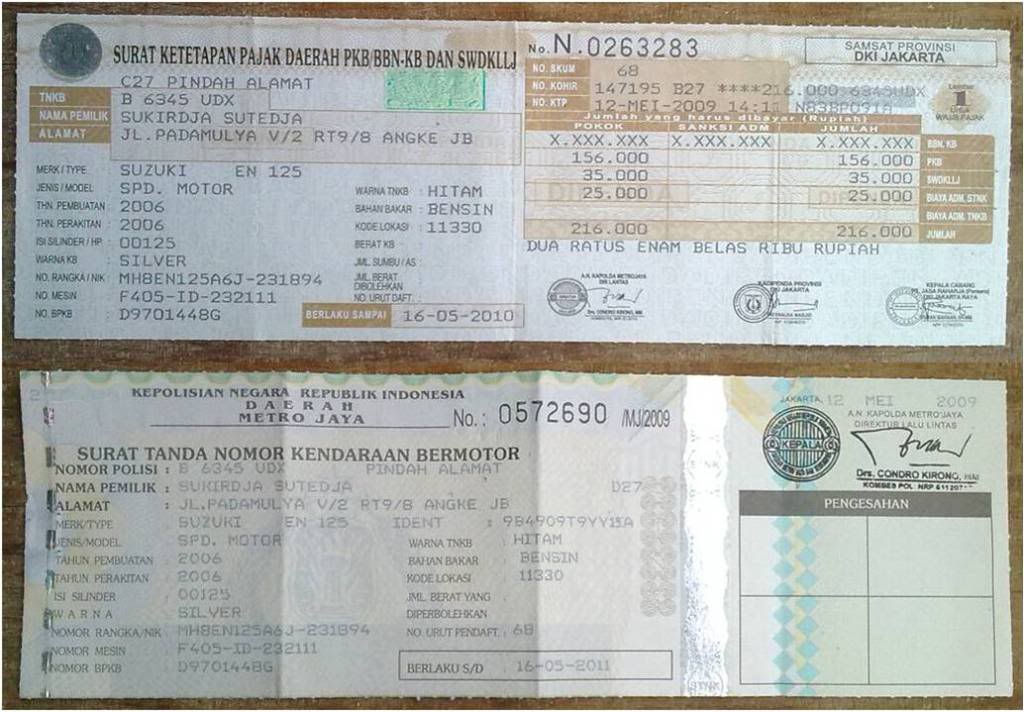 SURAT KETETAPAN PAJAK DAERAH PKB/BBN-KB DAN SWDKLLJ
No. N.0263283
SAMSAT PROVINSI
DKI JAKARTA
C27 PINDAH ALAMAT
TNKB B 6345 UDX
NAMA PEMILIK SUKIRDJA SUTEDJA
ALAMAT JL.PADAMULYA V/2 RT9/8 ANGKE JB
NO. SKUM 68
NO. KOHIR 147195 B27 ****216.000
NO. KTP 12-MEI-2009 14:11
1
WAJIB PAJAK
Jumlah yang harus dibayar (Rupiah)
POKOK SANKSI ADM JUMLAH
X.XXX.XXX X.XXX.XXX X.XXX.XXX BBN. KB
156.000 156.000 PKB
35.000 35.000 SWDKLLJ
25.000 25.000 BIAYA ADM. STNK
BIAYA ADM. TNKB
216.000 216.000 JUMLAH
DUA RATUS ENAM BELAS RIBU RUPIAH
MERK / TYPE : SUZUKI EN 125
JENIS / MODEL : SPD. MOTOR
THN. PEMBUATAN : 2006
THN. PERAKITAN : 2006
ISI SILINDER / HP : 00125
WARNA KB : SILVER
NO. RANGKA / NIK : MH8EN125A6J-231894
NO. MESIN : F405-ID-232111
NO. BPKB : D9701448G
WARNA TNKB : HITAM
BAHAN BAKAR : BENSIN
KODE LOKASI : 11330
BERAT KB :
JML. SUMBU / AS :
JML. BERAT DIBOLEHKAN :
NO. URUT DAFT. :
BERLAKU SAMPAI 16-05-2010
A.N. KAPOLDA METROJAYA
DIR LANTAS
Drs. CONDRO KIRONO, MM
KADIPENDA PROVINSI
DKI JAKARTA
KEPALA CABANG
PT. JASA RAHARJA (Persero)
DKI JAKARTA RAYA
KEPOLISIAN NEGARA REPUBLIK INDONESIA
DAERAH
METRO JAYA
No. : 0572690 /MJ/2009
SURAT TANDA NOMOR KENDARAAN BERMOTOR
NOMOR POLISI : B 6345 UDX PINDAH ALAMAT
NAMA PEMILIK : SUKIRDJA SUTEDJA D27
ALAMAT : JL.PADAMULYA V/2 RT9/8 ANGKE JB
MERK/TYPE : SUZUKI EN 125 IDENT : 9B4909T9YY15A
JENIS/MODEL : SPD. MOTOR
TAHUN PEMBUATAN : 2006
TAHUN PERAKITAN : 2006
ISI SILINDER : 00125
WARNA : SILVER
NOMOR RANGKA/NIK : MH8EN125A6J-231894
NOMOR MESIN : F405-ID-232111
NOMOR BPKB : D9701448G
WARNA TNKB : HITAM
BAHAN BAKAR : BENSIN
KODE LOKASI : 11330
JML. BERAT YANG DIPERBOLEHKAN :
NO. URUT PENDAFT. : 68
BERLAKU S/D : 16-05-2011
JAKARTA, 12 MEI 2009
A.N. KAPOLDA METRO JAYA
DIREKTUR LALU LINTAS
KEPALA
Drs. CONDRO KIRONO, MM
KOMBES POL NRP
PENGESAHAN